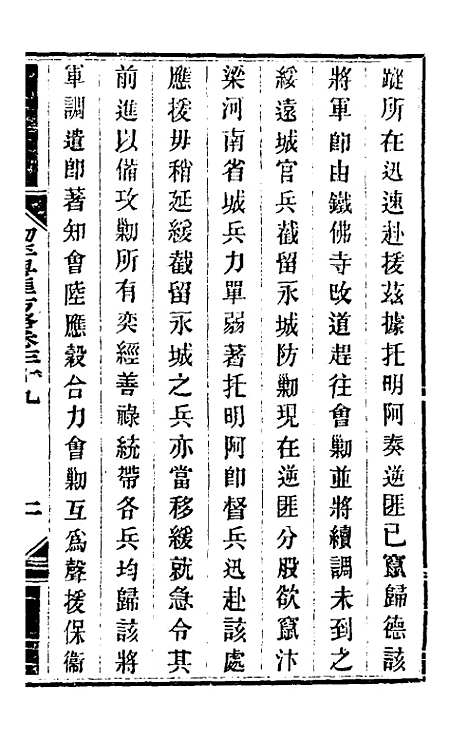 蹤所在迅速赴援茲據托明阿奏逆匪已竄歸德該
將軍卽由鐵佛寺改道趕往會勦並將續調未到之
綏遠城官兵截留永城防勦現在逆匪分股欲竄汴
梁河南省城兵力單弱著托明阿卽督兵迅赴該處
應援毋稍延緩截留永城之兵亦當移緩就急令其
前進以備攻勦所有奕經善祿統帶各兵均歸該將
軍調遣卽著知會陸應穀合力會勦互爲聲援保衞
卷三十九
二